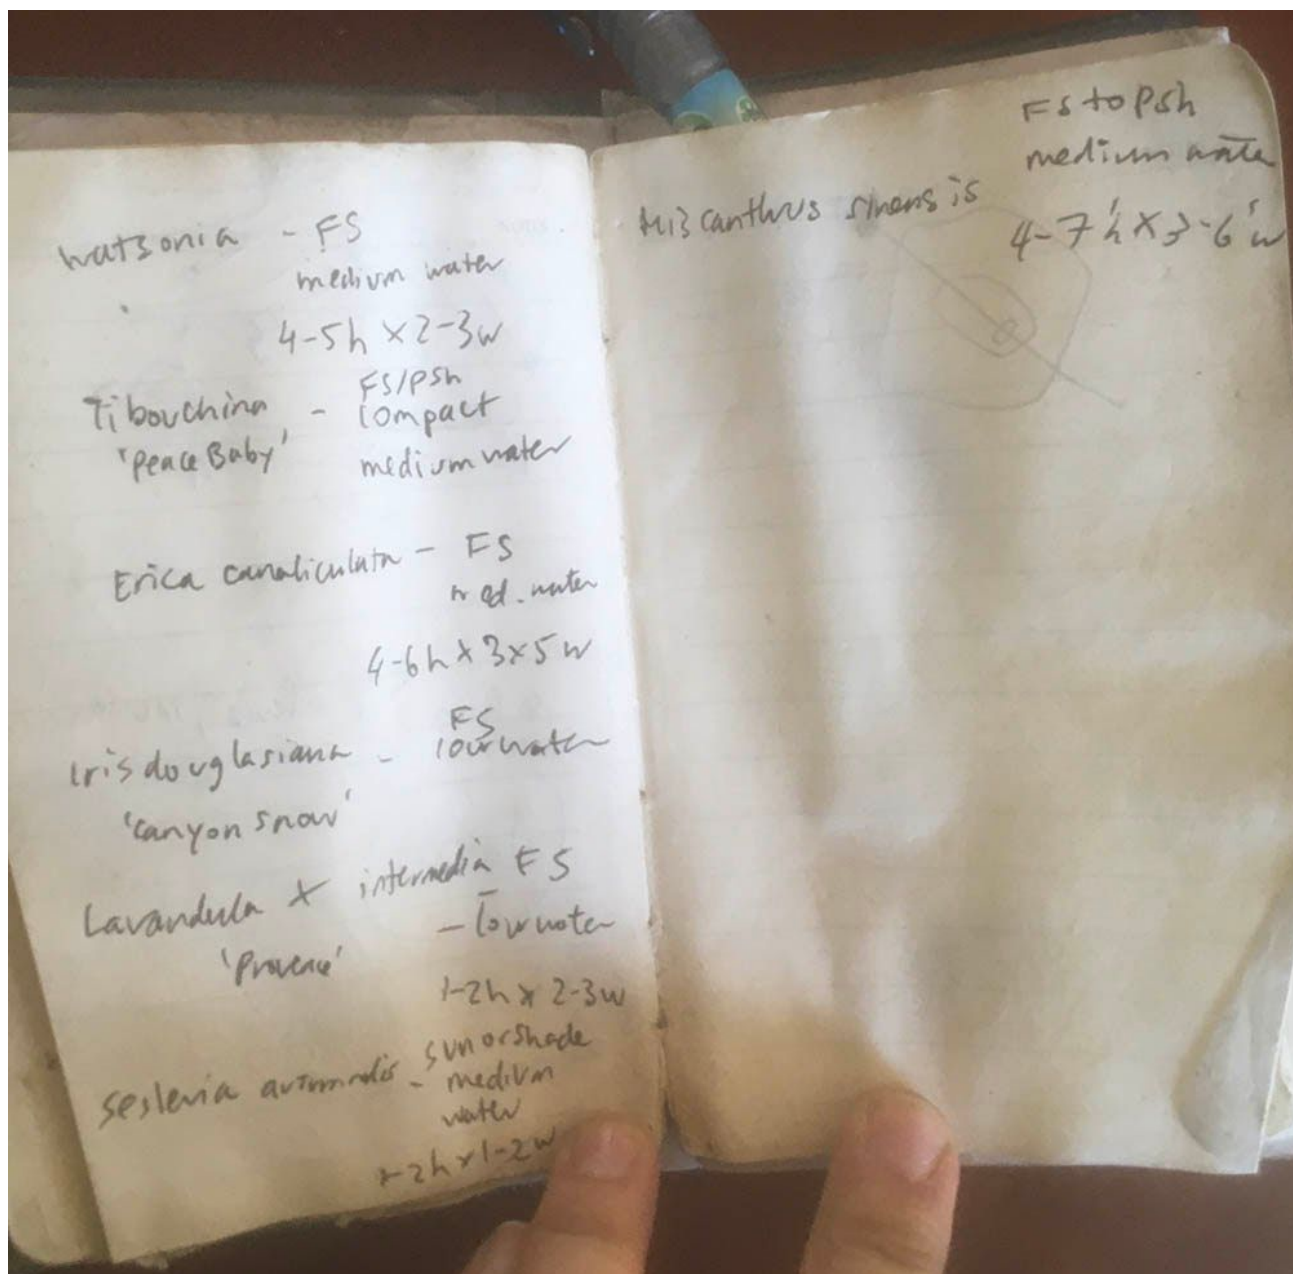 watsonia - FS
medium water
4-5h x 2-3w
Tibouchina - FS/PSh
'Peace Baby' compact
medium water
Erica canaliculata - FS
med. water
4-6h x 3x5w
Iris douglasiana - FS
'canyon snow' low water
Lavandula X intermedia FS
'Provence' - low water
1-2h x 2-3w
Sesleria autumnalis - sun or shade
medium
water
1-2h x 1-2w
FS to PSh
medium water
Miscanthus sinensis
4-7'h X 3-6'w